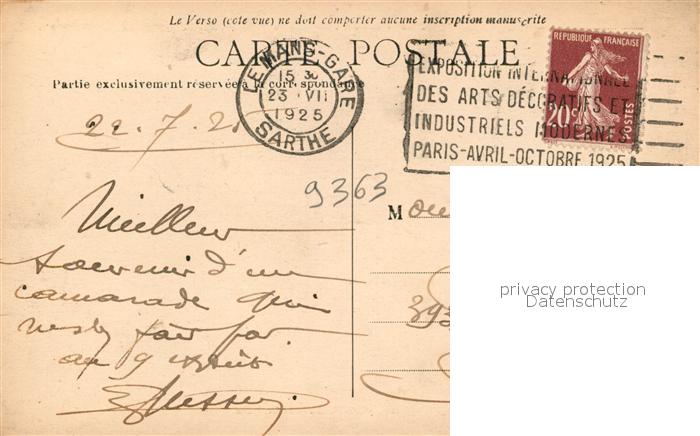 Le Verso (côté vue) ne doit comporter aucune inscription manuscrite
CARTE POSTALE
Partie exclusivement réservée à la correspondance
LE MANS-GARE
15 30
23 VII
1925
SARTHE
EXPOSITION INTERNATIONALE
DES ARTS DÉCORATIFS ET
INDUSTRIELS MODERNES
PARIS-AVRIL-OCTOBRE 1925
REPUBLIQUE FRANÇAISE
20c
POSTES
22.7.25
9363
M
Meilleur
souvenir d'un
camarade qui
393
privacy protection
Datenschutz